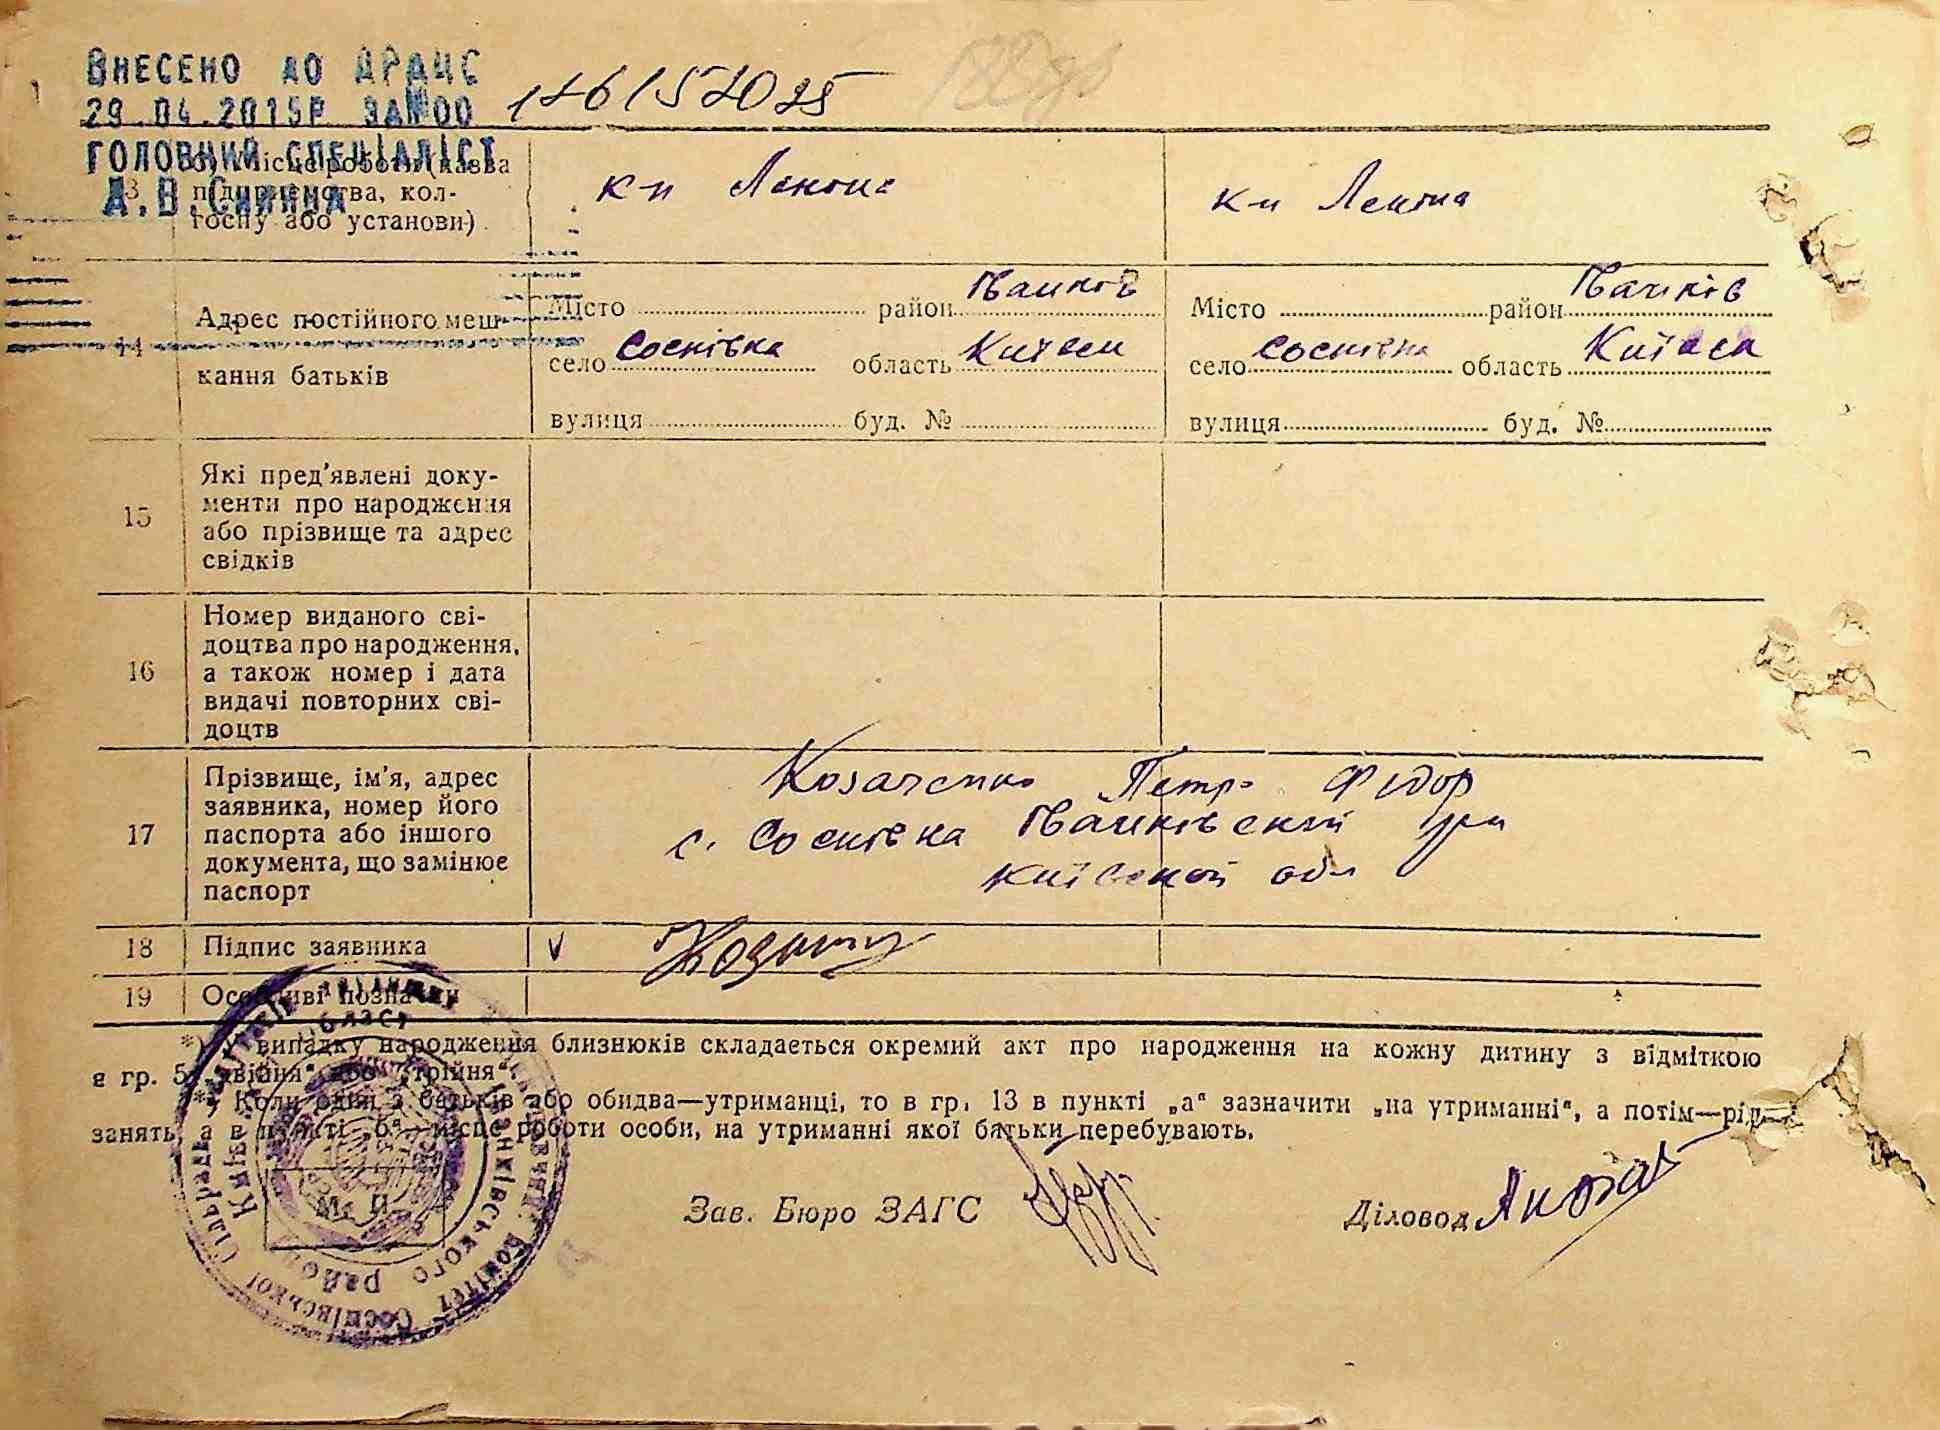 ВНЕСЕНО ДО ДРАЦС
29.04.2015Р ЗА №00
ГОЛОВНИЙ СПЕЦІАЛІСТ
А.В.
підприємства, кол-
госпу або установи)
к-п Леніна
к-п Леніна
14
Адрес постійного меш-
кання батьків
Місто район Іванків
село Соснівка область
вулиця буд. №
Місто район Іванків
село Соснівка область
вулиця буд. №
15
Які пред'явлені доку-
менти про народження
або прізвище та адрес
свідків
16
Номер виданого сві-
доцтва про народження,
а також номер і дата
видачі повторних сві-
доцтв
17
Прізвище, ім'я, адрес
заявника, номер його
паспорта або іншого
документа, що замінює
паспорт
Козаченко Петро Федор
с. Соснівка
обл
18
Підпис заявника
V
19
Особливі позначки
*) У випадку народження близнюків складається окремий акт про народження на кожну дитину з відміткою
в гр. 5 „двійня" або „трійня".
Коли один з батьків або обидва—утриманці, то в гр. 13 в пункті „а" зазначити „на утриманні", а потім—рід
занять, а в пункті „б"—місце роботи особи, на утриманні якої батьки перебувають.
М. П.
Зав. Бюро ЗАГС
Діловод